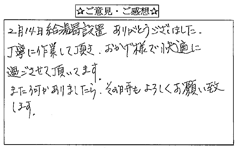 ☆ご意見・ご感想☆
2月14日給湯器設置 ありがとうございました。
丁寧に作業して頂き、おかげ様で快適に
過ごさせて頂いてます。
また何かありましたら、その時もよろしくお願い致
します。